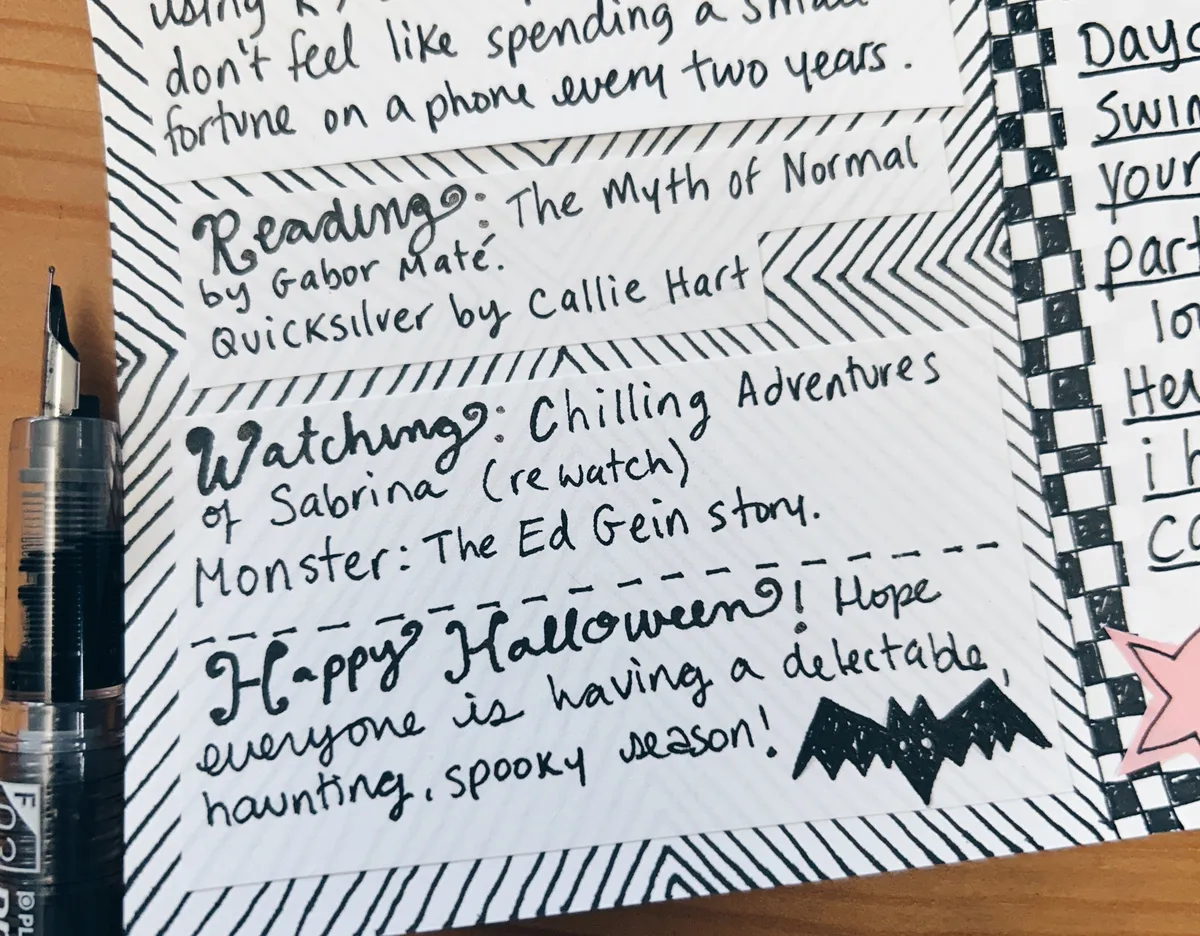 using
don't feel like spending a small
fortune on a phone every two years.
Reading: The Myth of Normal
by Gabor Maté.
Quicksilver by Callie Hart
Watching: Chilling Adventures
of Sabrina (rewatch)
Monster: The Ed Gein story.
Happy Halloween! Hope
everyone is having a delectable,
haunting, spooky season!
your
part
i h
F